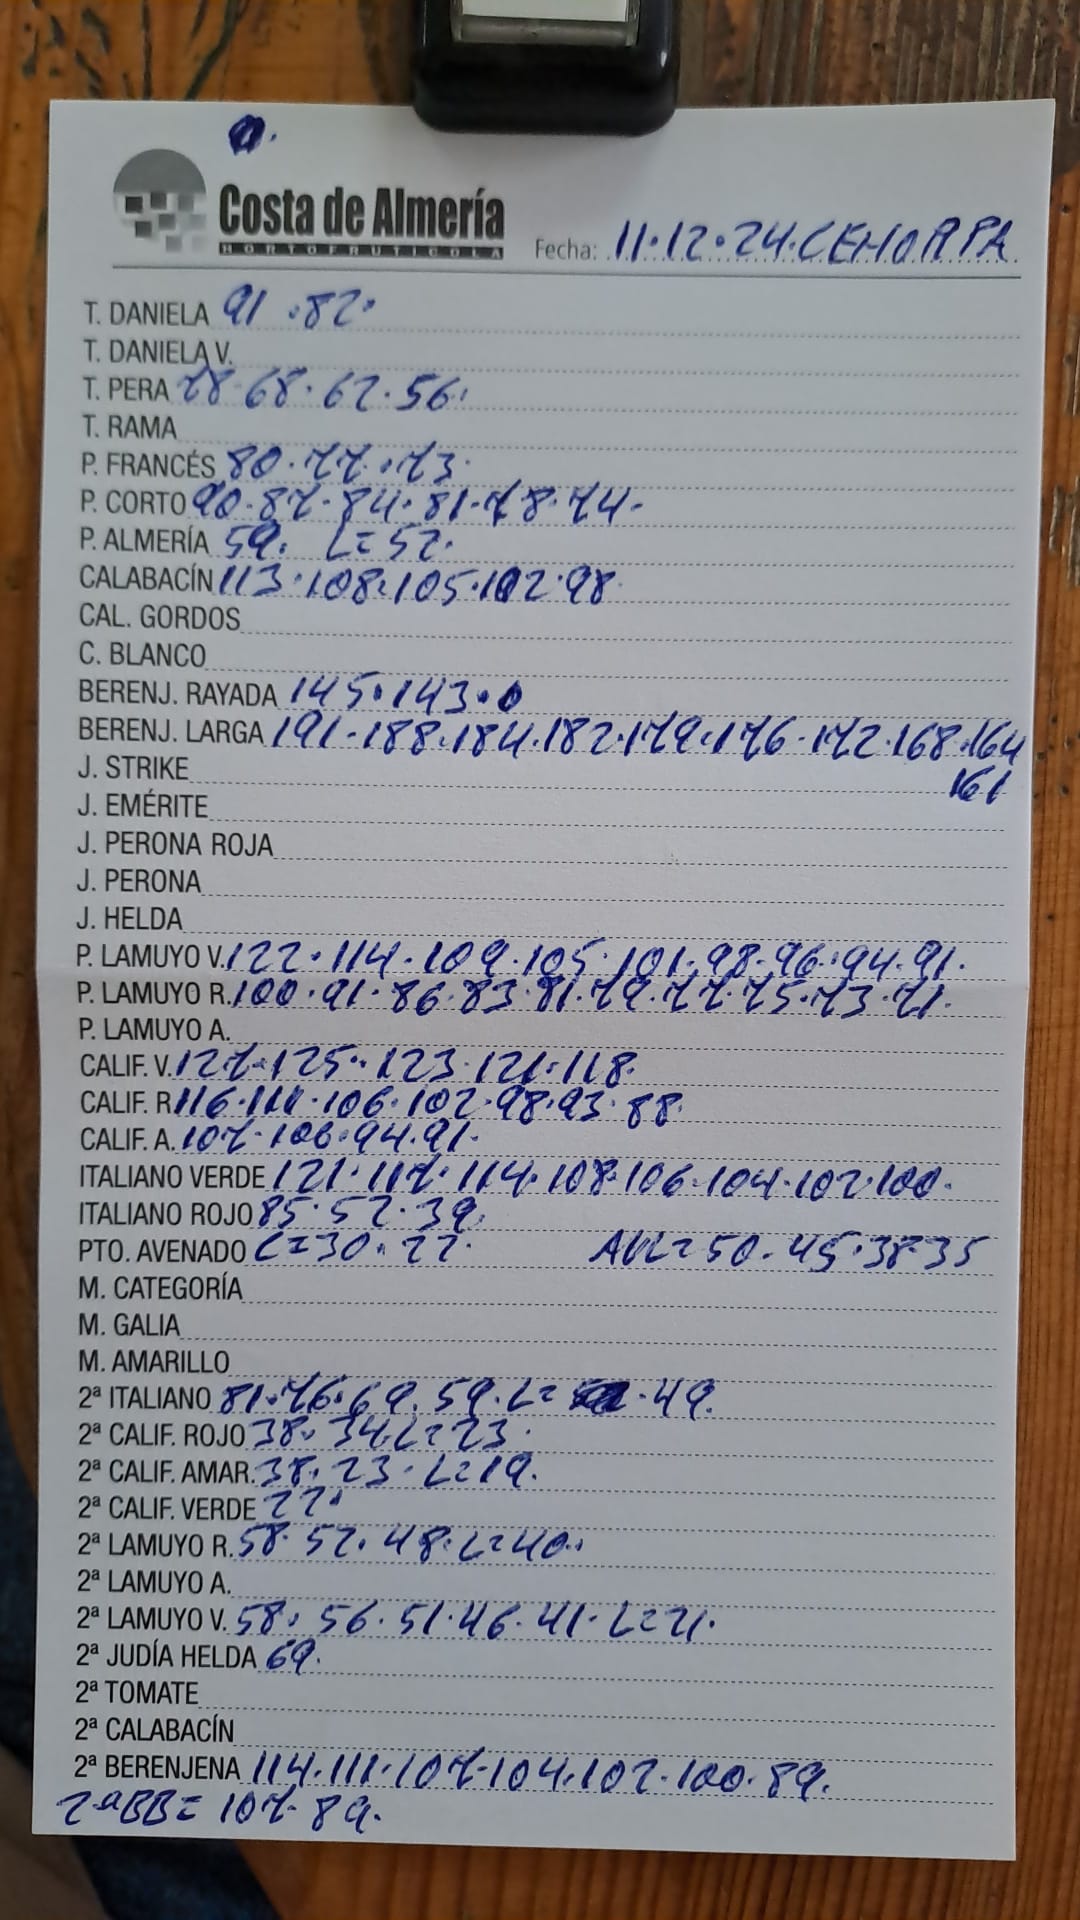 Costa de Almería
HORTOFRUTICOLA
Fecha: 11.12.24.CEHORPA
T. DANIELA 91 .82.
T. DANIELA V.
T. PERA 78.68.62.56.
T. RAMA
P. FRANCÉS 80.77.73.
P. CORTO 90.87.84.81.78.74.
P. ALMERÍA 59. L=52.
CALABACÍN 113.108.105.102.98.
CAL. GORDOS
C. BLANCO
BERENJ. RAYADA 145.143.
BERENJ. LARGA 191.188.184.182.179.176.172.168.164
161
J. STRIKE
J. EMÉRITE
J. PERONA ROJA
J. PERONA
J. HELDA
P. LAMUYO V. 122.114.109.105.101.98.96.94.91.
P. LAMUYO R. 100.91.86.83.81.79.77.75.73.71.
P. LAMUYO A.
CALIF. V. 127.125.123.121.118.
CALIF. R 116.111.106.102.98.93.88.
CALIF. A. 107.106.94.91.
ITALIANO VERDE 121.117.114.108.106.104.102.100.
ITALIANO ROJO 85.52.39.
PTO. AVENADO L=30.22. AVL=50.45.38.35
M. CATEGORÍA
M. GALIA
M. AMARILLO
2ª ITALIANO 81.76.69.59.L= .49.
2ª CALIF. ROJO 38.34.L=23.
2ª CALIF. AMAR. 38.23.L=19.
2ª CALIF. VERDE 22.
2ª LAMUYO R. 58.52.48.L=40.
2ª LAMUYO A.
2ª LAMUYO V. 58.56.51.46.41.L=21.
2ª JUDÍA HELDA 69.
2ª TOMATE
2ª CALABACÍN
2ª BERENJENA 114.111.107.104.102.100.89.
2ªBB=107.89.